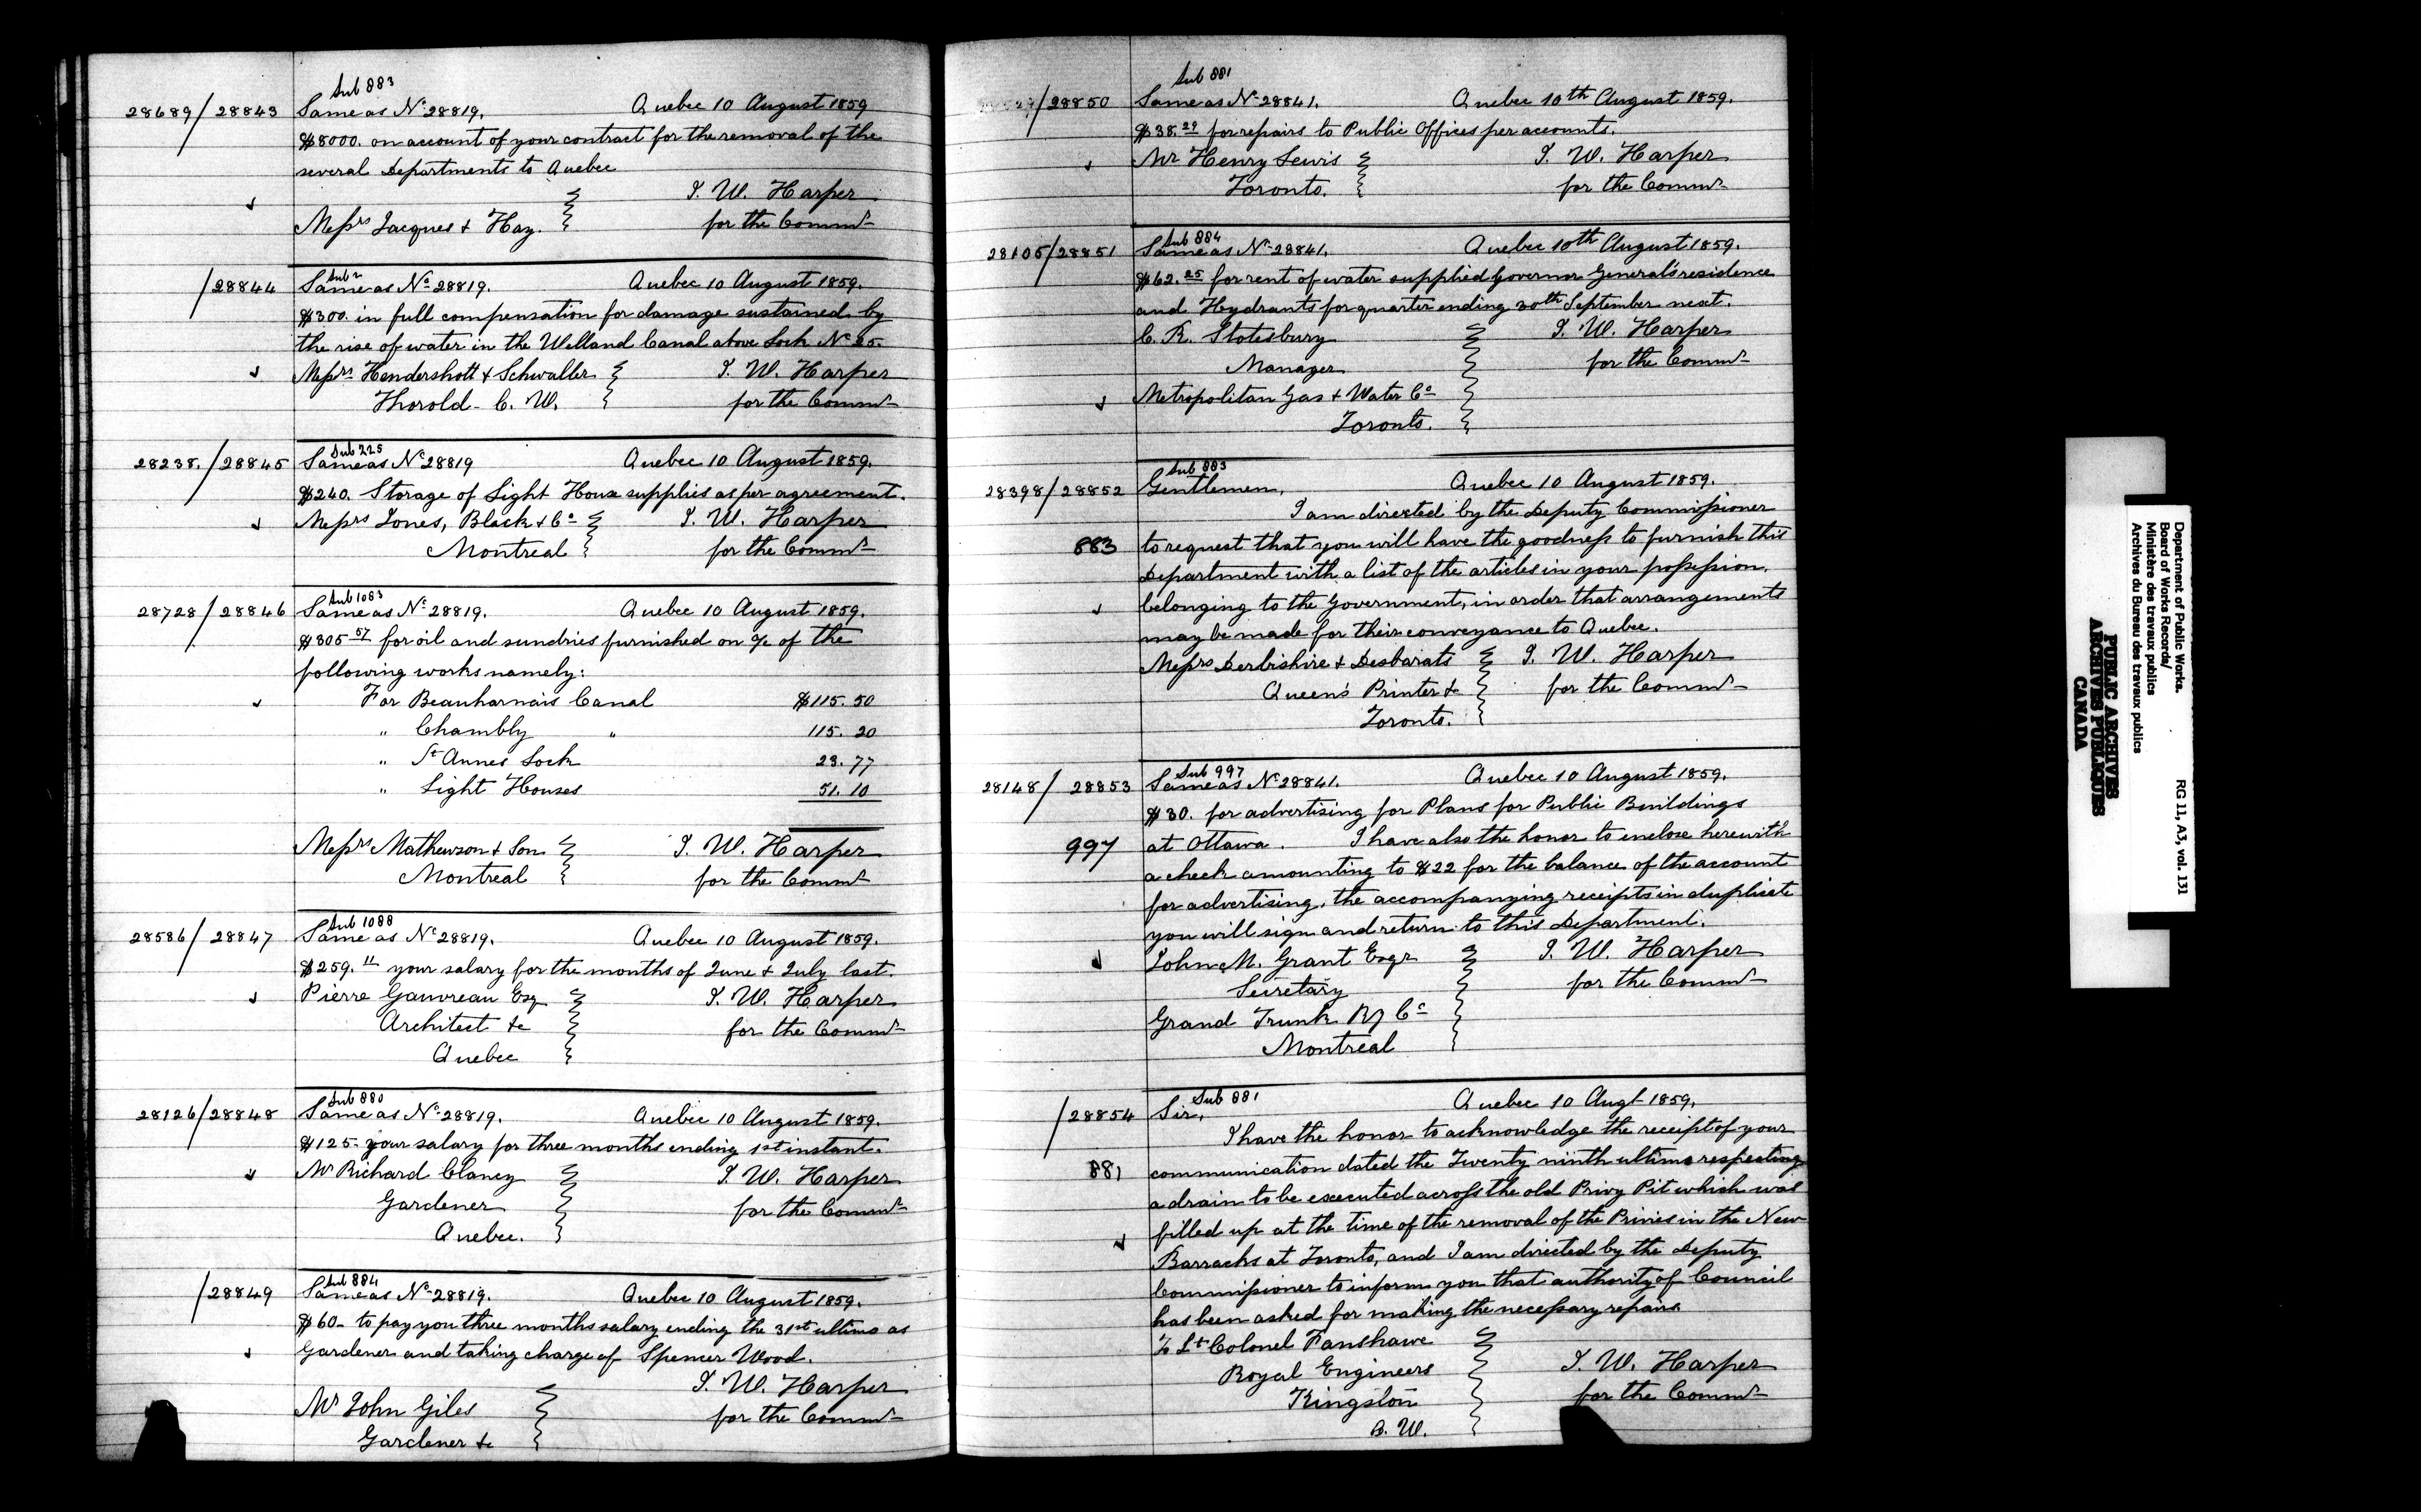 Sub 883
28689/28843 Same as No 28819. Quebec 10 August 1859
$8000. on account of your contract for the removal of the
several Departments to Quebec
T. W. Harper
Messrs Jacques & Hay. for the Commr
Sub 2
/28844 Same as No 28819. Quebec 10 August 1859.
$300. in full compensation for damage sustained by
the rise of water in the Welland Canal above Lock No 25.
Messrs Hendershott & Schwaller T. W. Harper
Thorold - C. W. for the Commr
Sub 225
28238./28845 Same as No 28819 Quebec 10 August 1859.
$240. Storage of Light House supplies as per agreement.
Messrs Jones, Black & Co T. W. Harper
Montreal for the Commr
Sub 1083
28728/28846 Same as No 28819. Quebec 10 August 1859.
$305 57 for oil and sundries furnished on a/c of the
following works namely:
For Beauharnais Canal $115. 50
" Chambly " 115. 20
" St Annes Lock 23. 77
" Light Houses 51. 10
Messrs Mathewson & Son T. W. Harper
Montreal for the Commr
Sub 1088
28586/28847 Same as No 28819. Quebec 10 August 1859.
$259. 11 your salary for the months of June & July last.
Pierre Gauvreau Esq T. W. Harper
Architect &c for the Commr
Quebec
Sub 880
28126/28848 Same as No 28819. Quebec 10 August 1859.
$125. your salary for three months ending 1st instant.
Mr Richard Clancy T. W. Harper
Gardener for the Commr
Quebec.
Sub 884
/28849 Same as No 28819. Quebec 10 August 1859.
$60- to pay you three months salary ending the 31st ultimo as
Gardener and taking charge of Spencer Wood.
T. W. Harper
Mr John Giles for the Commr
Gardener &c
Sub 881
/28850 Same as No 28841. Quebec 10th August 1859.
$38. 29 for repairs to Public Offices per accounts.
Mr Henry Lewis T. W. Harper
Toronto. for the Commr
Sub 884
28105/28851 Same as No 28841. Quebec 10th August 1859.
$62. 25 for rent of water supplied Governor General's residence
and Hydrants for quarter ending 30th September next.
C. R. Stotesbury T. W. Harper
Manager for the Commr
Metropolitan Gas & Water Co
Toronto.
Sub 883
28398/28852 Gentlemen, Quebec 10 August 1859.
I am directed by the Deputy Commissioner
883 to request that you will have the goodness to furnish this
Department with a list of the articles in your possession,
belonging to the Government, in order that arrangements
may be made for their conveyance to Quebec.
Messrs Derbishire & Desbarats T. W. Harper
Queen's Printer &c for the Commr
Toronto.
Sub 997
28148/28853 Same as No 28841. Quebec 10 August 1859.
$30. for advertising for Plans for Public Buildings
997 at Ottawa. I have also the honor to enclose herewith
a check amounting to $22 for the balance of the account
for advertising, the accompanying receipts in duplicate
you will sign and return to this Department.
John M. Grant Esqr T. W. Harper
Secretary for the Commr
Grand Trunk Ry Co
Montreal
Sub 881
/28854 Sir, Quebec 10 Augt 1859.
I have the honor to acknowledge the receipt of your
881 communication dated the Twenty ninth ultimo respecting
a drain to be executed across the old Privy Pit which was
filled up at the time of the removal of the Privies in the New
Barracks at Toronto, and I am directed by the Deputy
Commissioner to inform you that authority of Council
has been asked for making the necessary repairs.
To Lt Colonel Fanshawe
Royal Engineers T. W. Harper
Kingston for the Commr
C. W.
Department of Public Works.
Board of Works Records/
Ministère des travaux publics
Archives du Bureau des travaux publics
RG 11, A3, vol. 131
PUBLIC ARCHIVES
ARCHIVES PUBLIQUES
CANADA